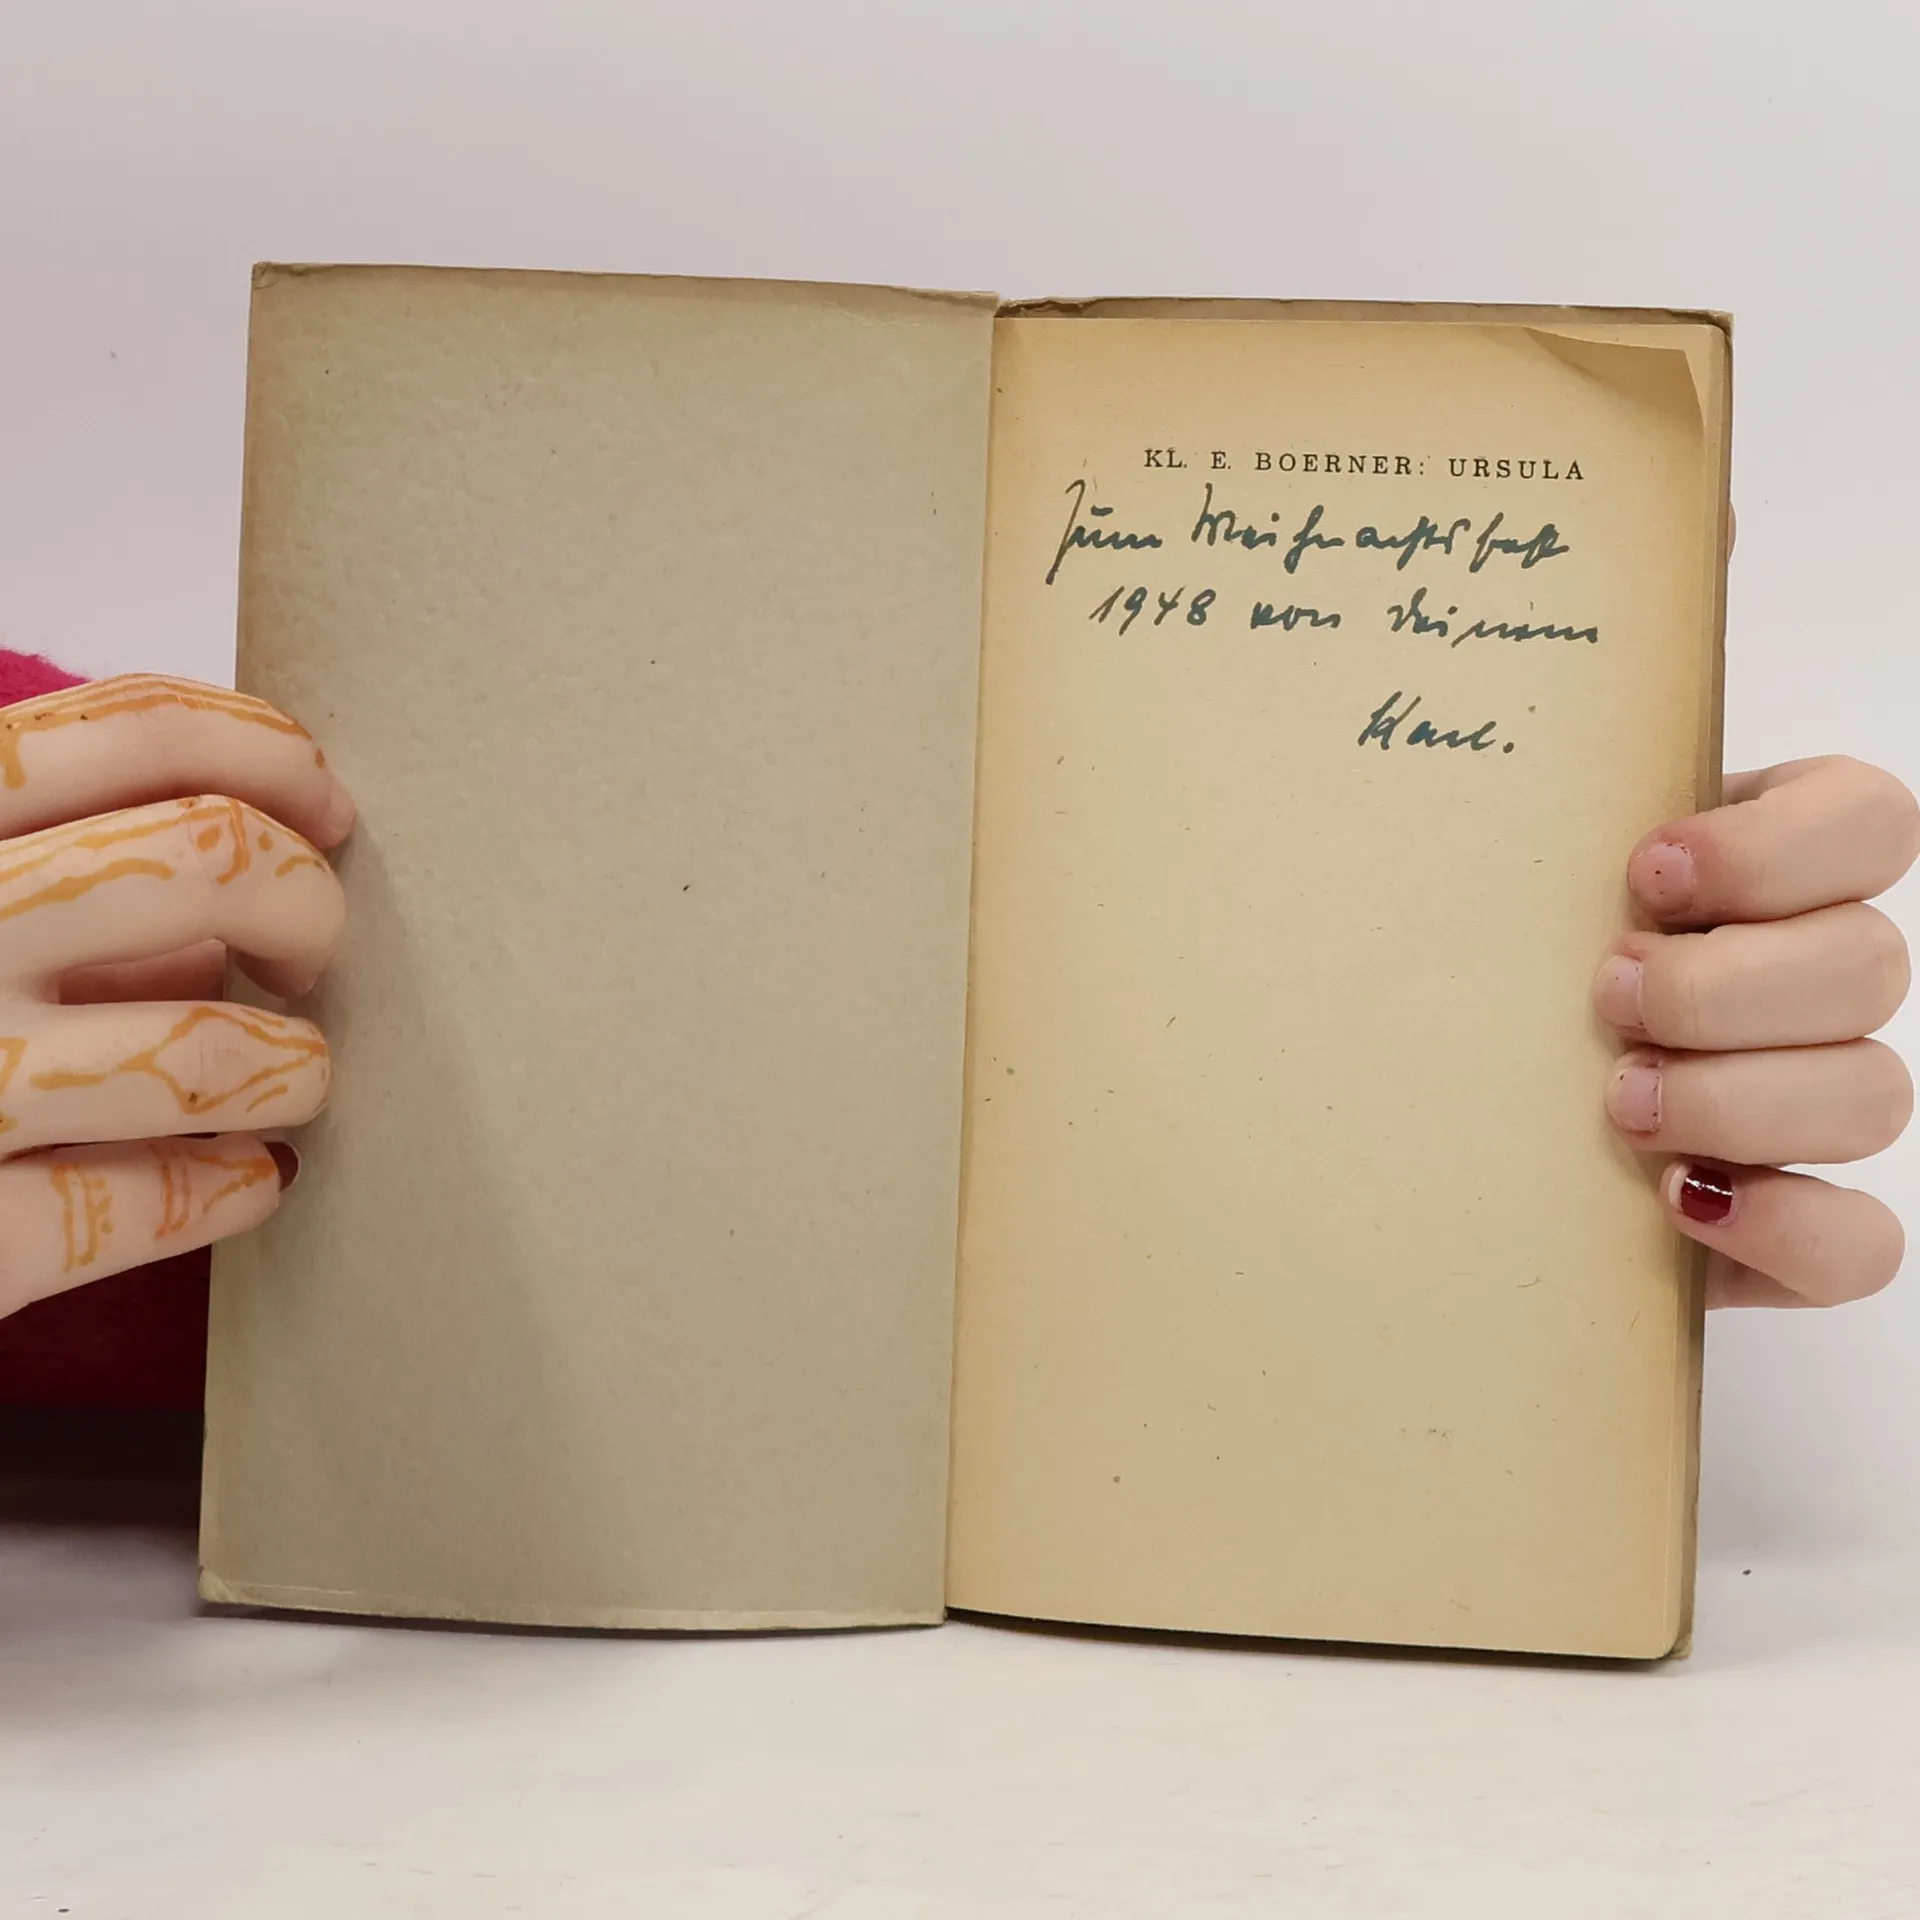 KL. E. BOERNER: URSULA
Zum Weihnachtsfest
1948 von Deinem
Karl.